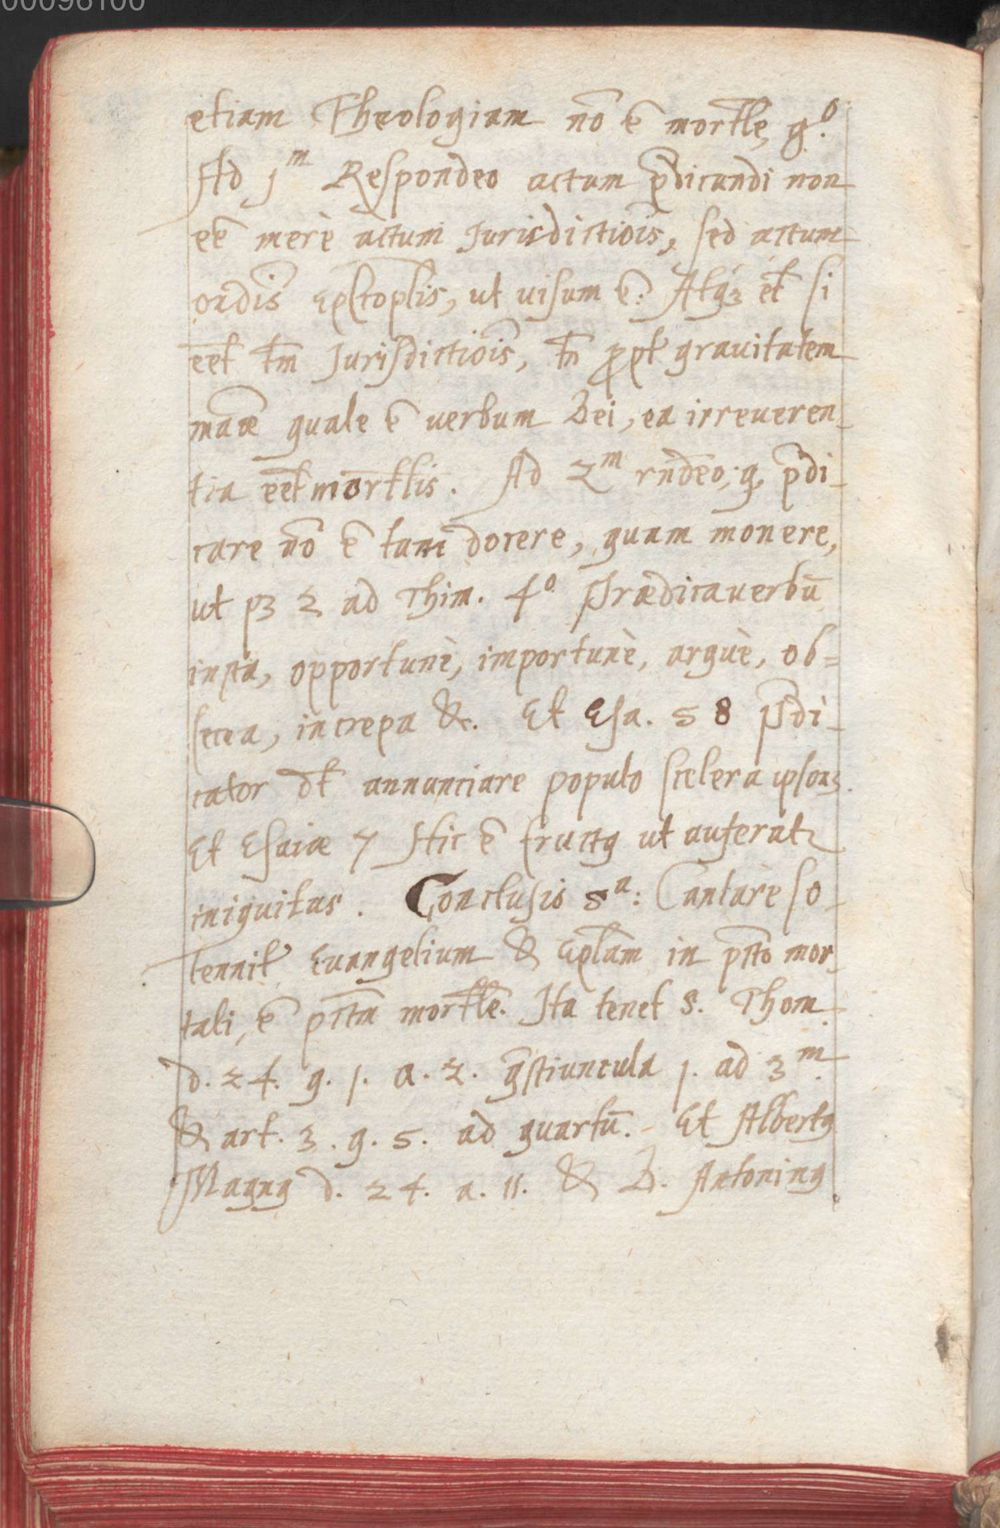 00096100
etiam Theologiam nō ē mortl̄e, g.º
Ad jᵐ Respondeo actum p̄dicandi non
eē merè actum Jurisdictiōis, sed actum
ordīs Ep̄toplis, ut uisum ē: Atqꝫ et̄ si
eēt tm̄ Jurisdictiōis, tn̄ ꝓpt̄ grauitatem
māæ quale ē uerbum Dei, ea irreueren-
tia eēt mort̄lis. Ad 2ᵐ rn̄deo, q, p̄di-
care nō ē tam docere, quam monere,
ut pꝫ 2 ad Thim. 4º Prædica uerbū
insta, opportunè, importunè, arguè, ob=
secra, increpa &c. Et Esa. 58 p̄di-
cator dt̄ annunciare populo scelera ipsorꝫ.
Et Esaiæ 7 Hic ē fructꝯ ut auferatr
iniquitas. Conclusio 8ª: Cantare so-
lennit̄ Euangelium & Ep̄lam in pc̄to mor-
tali, ē pc̄tm mortl̄e. Ita tenet S. Thom.
d. 24. q. 1. a. 2. q̄stiuncula 1. ad 3ᵐ.
& art. 3. q. 5. ad quartū. Et Albertꝯ
Magnꝯ d. 24. a. 11. & B. Antoninꝯ